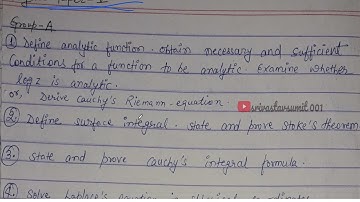 Group-A
① Define analytic function. obtain necessary and sufficient
Conditions for a function to be analytic. Examine whether
log z is analytic.
or, Derive Cauchy's Riemann-equation.
srivastavsumit001
2. Define surface integral. state and prove Stoke's theorem
3. state and prove Cauchy's integral formula.
4. Solve Laplace's equation in